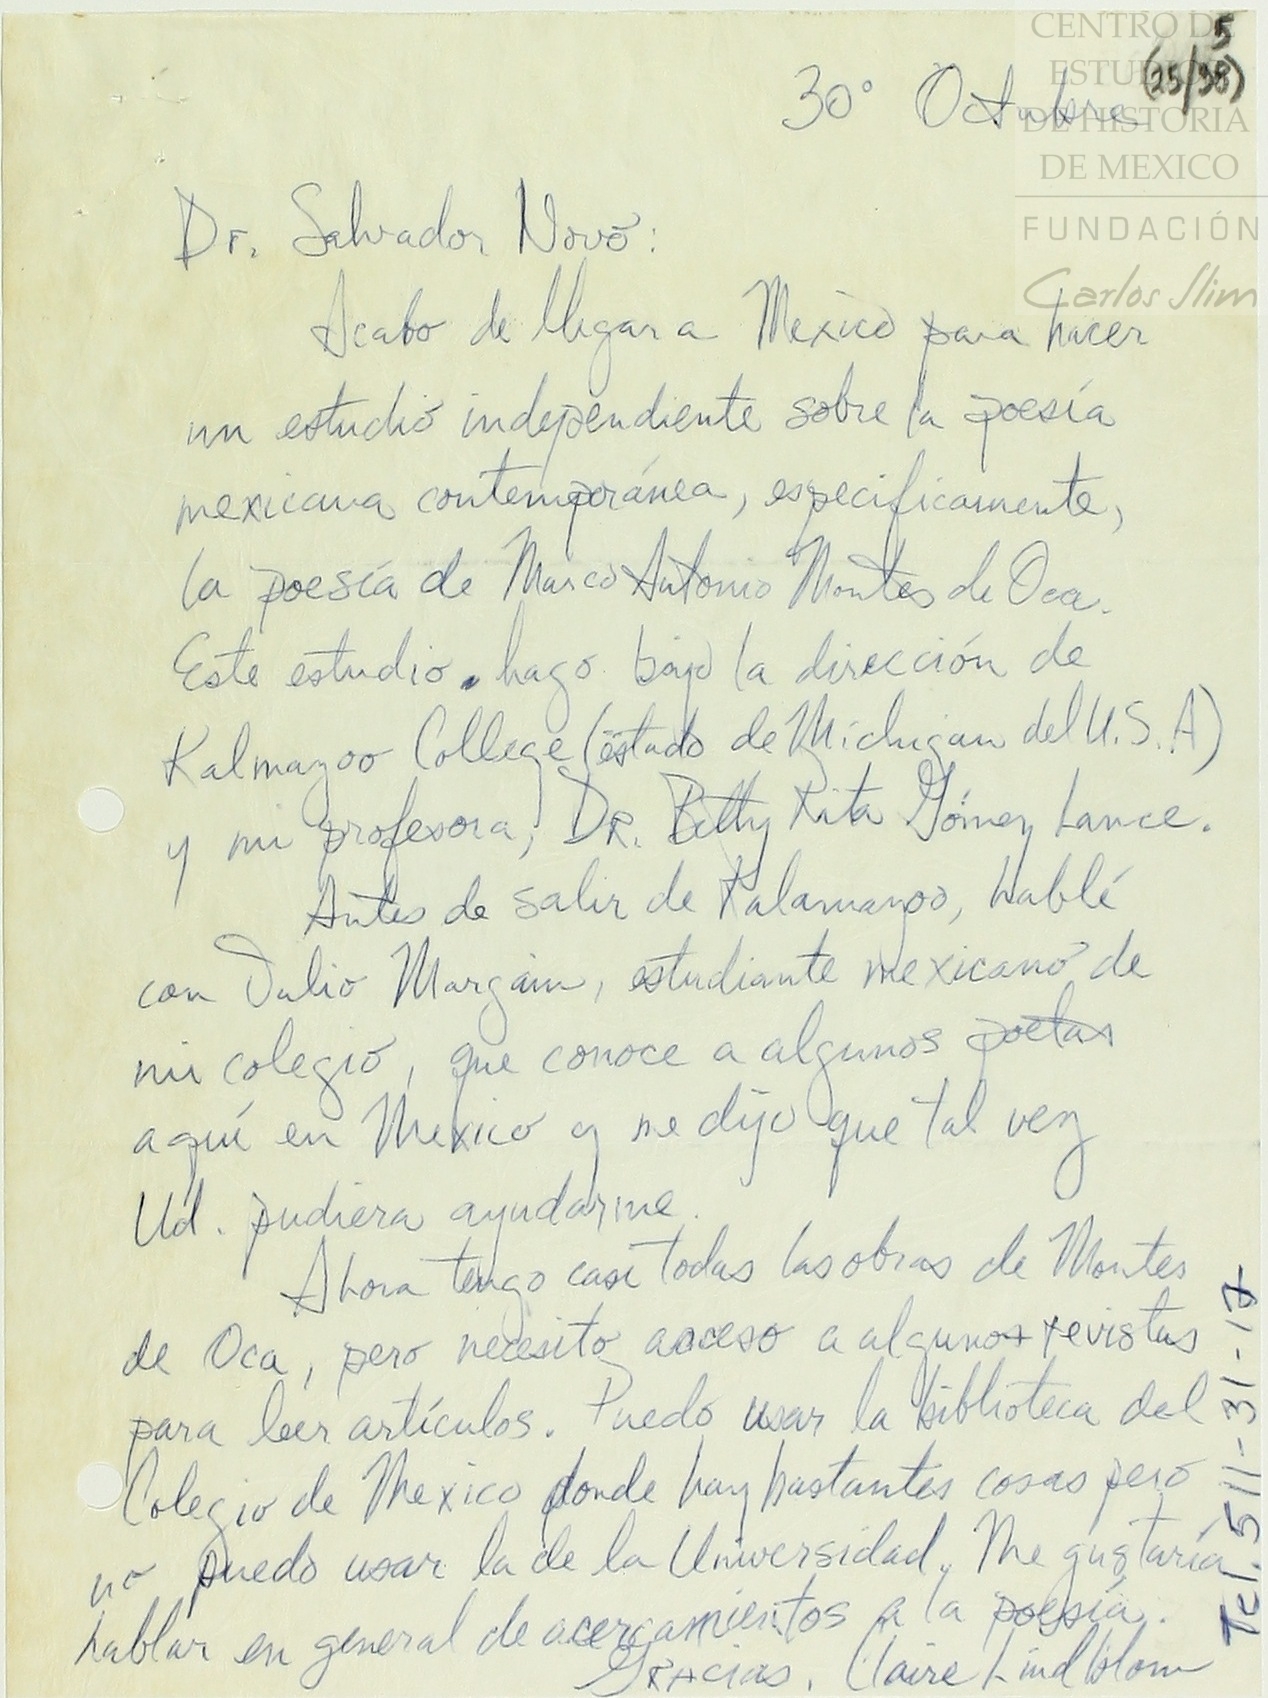 CENTRO DE
ESTUDIOS
DE HISTORIA
DE MEXICO
FUNDACIÓN
Carlos Slim
5
(25/98)
30° Octubre
Dr. Salvador Novo:
Acabo de llegar a Mexico para hacer
un estudio independiente sobre la poesía
mexicana contemporánea, especificamente,
la poesía de Marco Antonio Montes de Oca.
Este estudio hago bajo la dirección de
Kalmazoo College (estado de Michigan del U.S.A)
y mi profesora, DR. Betty Rita Gómez Lance.
Antes de salir de Kalamazoo, hablé
con Julio Margáin, estudiante mexicano de
mi colegio, que conoce a algunos poetas
aquí en Mexico y me dijo que tal vez
Ud. pudiera ayudarme.
Ahora tengo casi todas las obras de Montes
de Oca, pero necesito acceso a algunos revistas
para leer artículos. Puedo usar la biblioteca del
Colegio de Mexico donde hay bastantes cosas pero
no puedo usar la de la Universidad. Me gustaría
hablar en general de acercamientos a la poesía.
Gracias, Claire Lindblom
Tel. 511-31-17